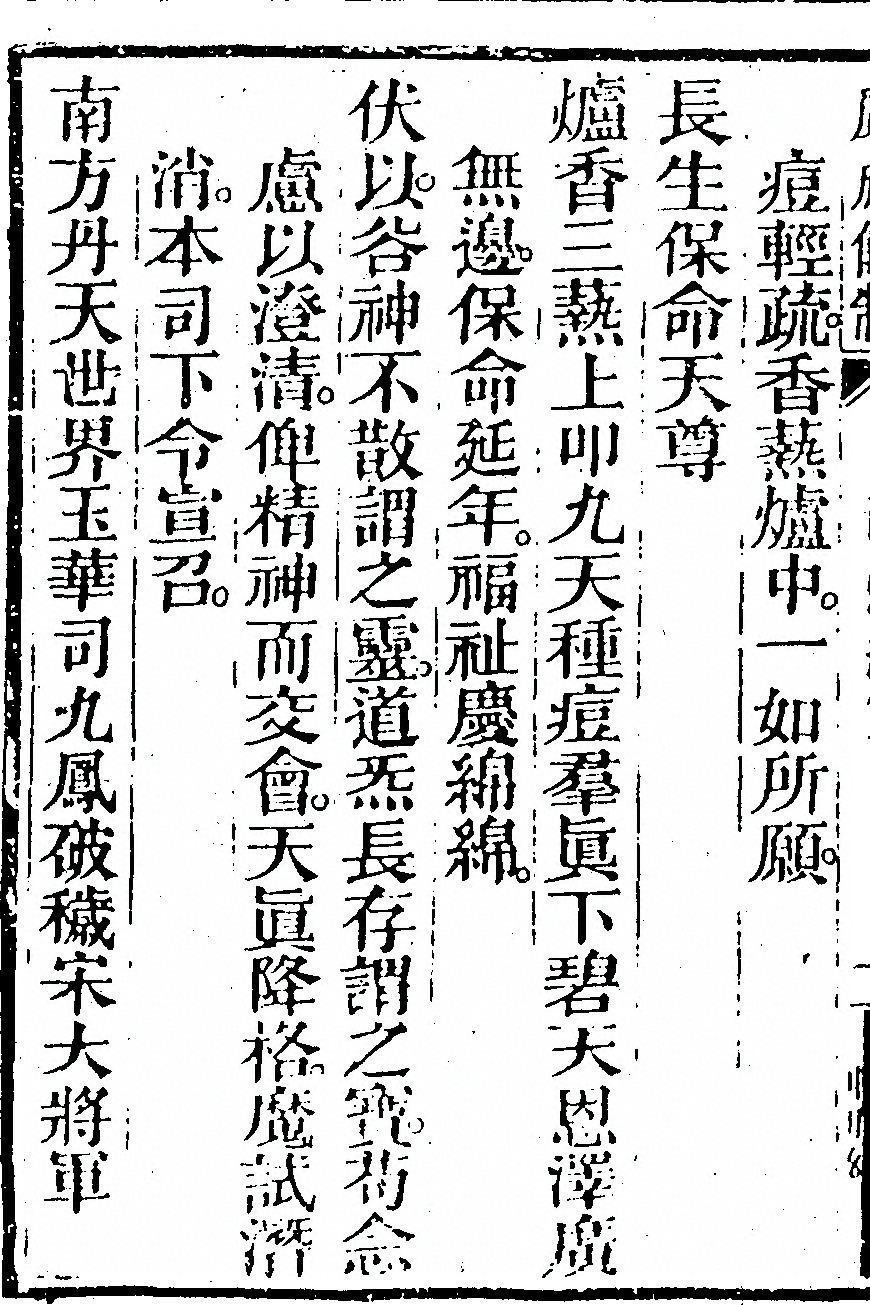 痘輕疏。香爇爐中。一如所願。
長生保命天尊
爐香三爇上叩九天種痘羣眞下碧天恩澤廣
無邊。保命延年。福祉慶綿綿。
伏以。谷神不散謂之靈。道炁長存謂之寶。苟念
慮以澄清。俾精神而交會。天眞降格。魔試潛
消。本司下令宣召。
南方丹天世界玉華司九鳳破穢宋大將軍